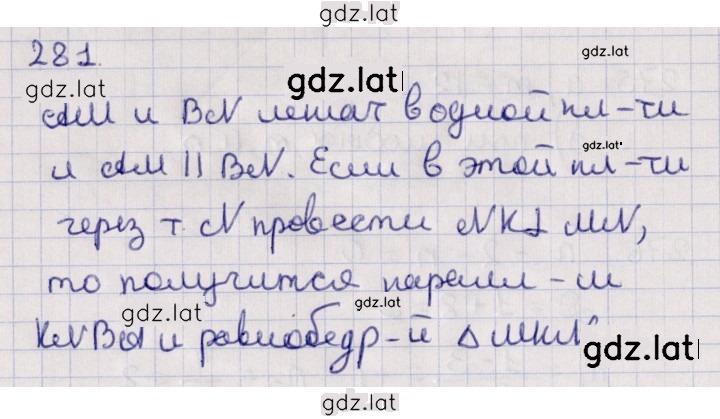 gdz.lat
281.
gdz.lat
gdz.lat
gdz.lat
AM и BN лежат в одной пл-ти
gdz.lat
и AM || BN. Если в этой пл-ти
через т. N провести NK⊥MN,
то получится паралл-м
gdz.lat
gdz.lat
KNBA и равнобедр-й △MKN
gdz.lat
gdz.lat